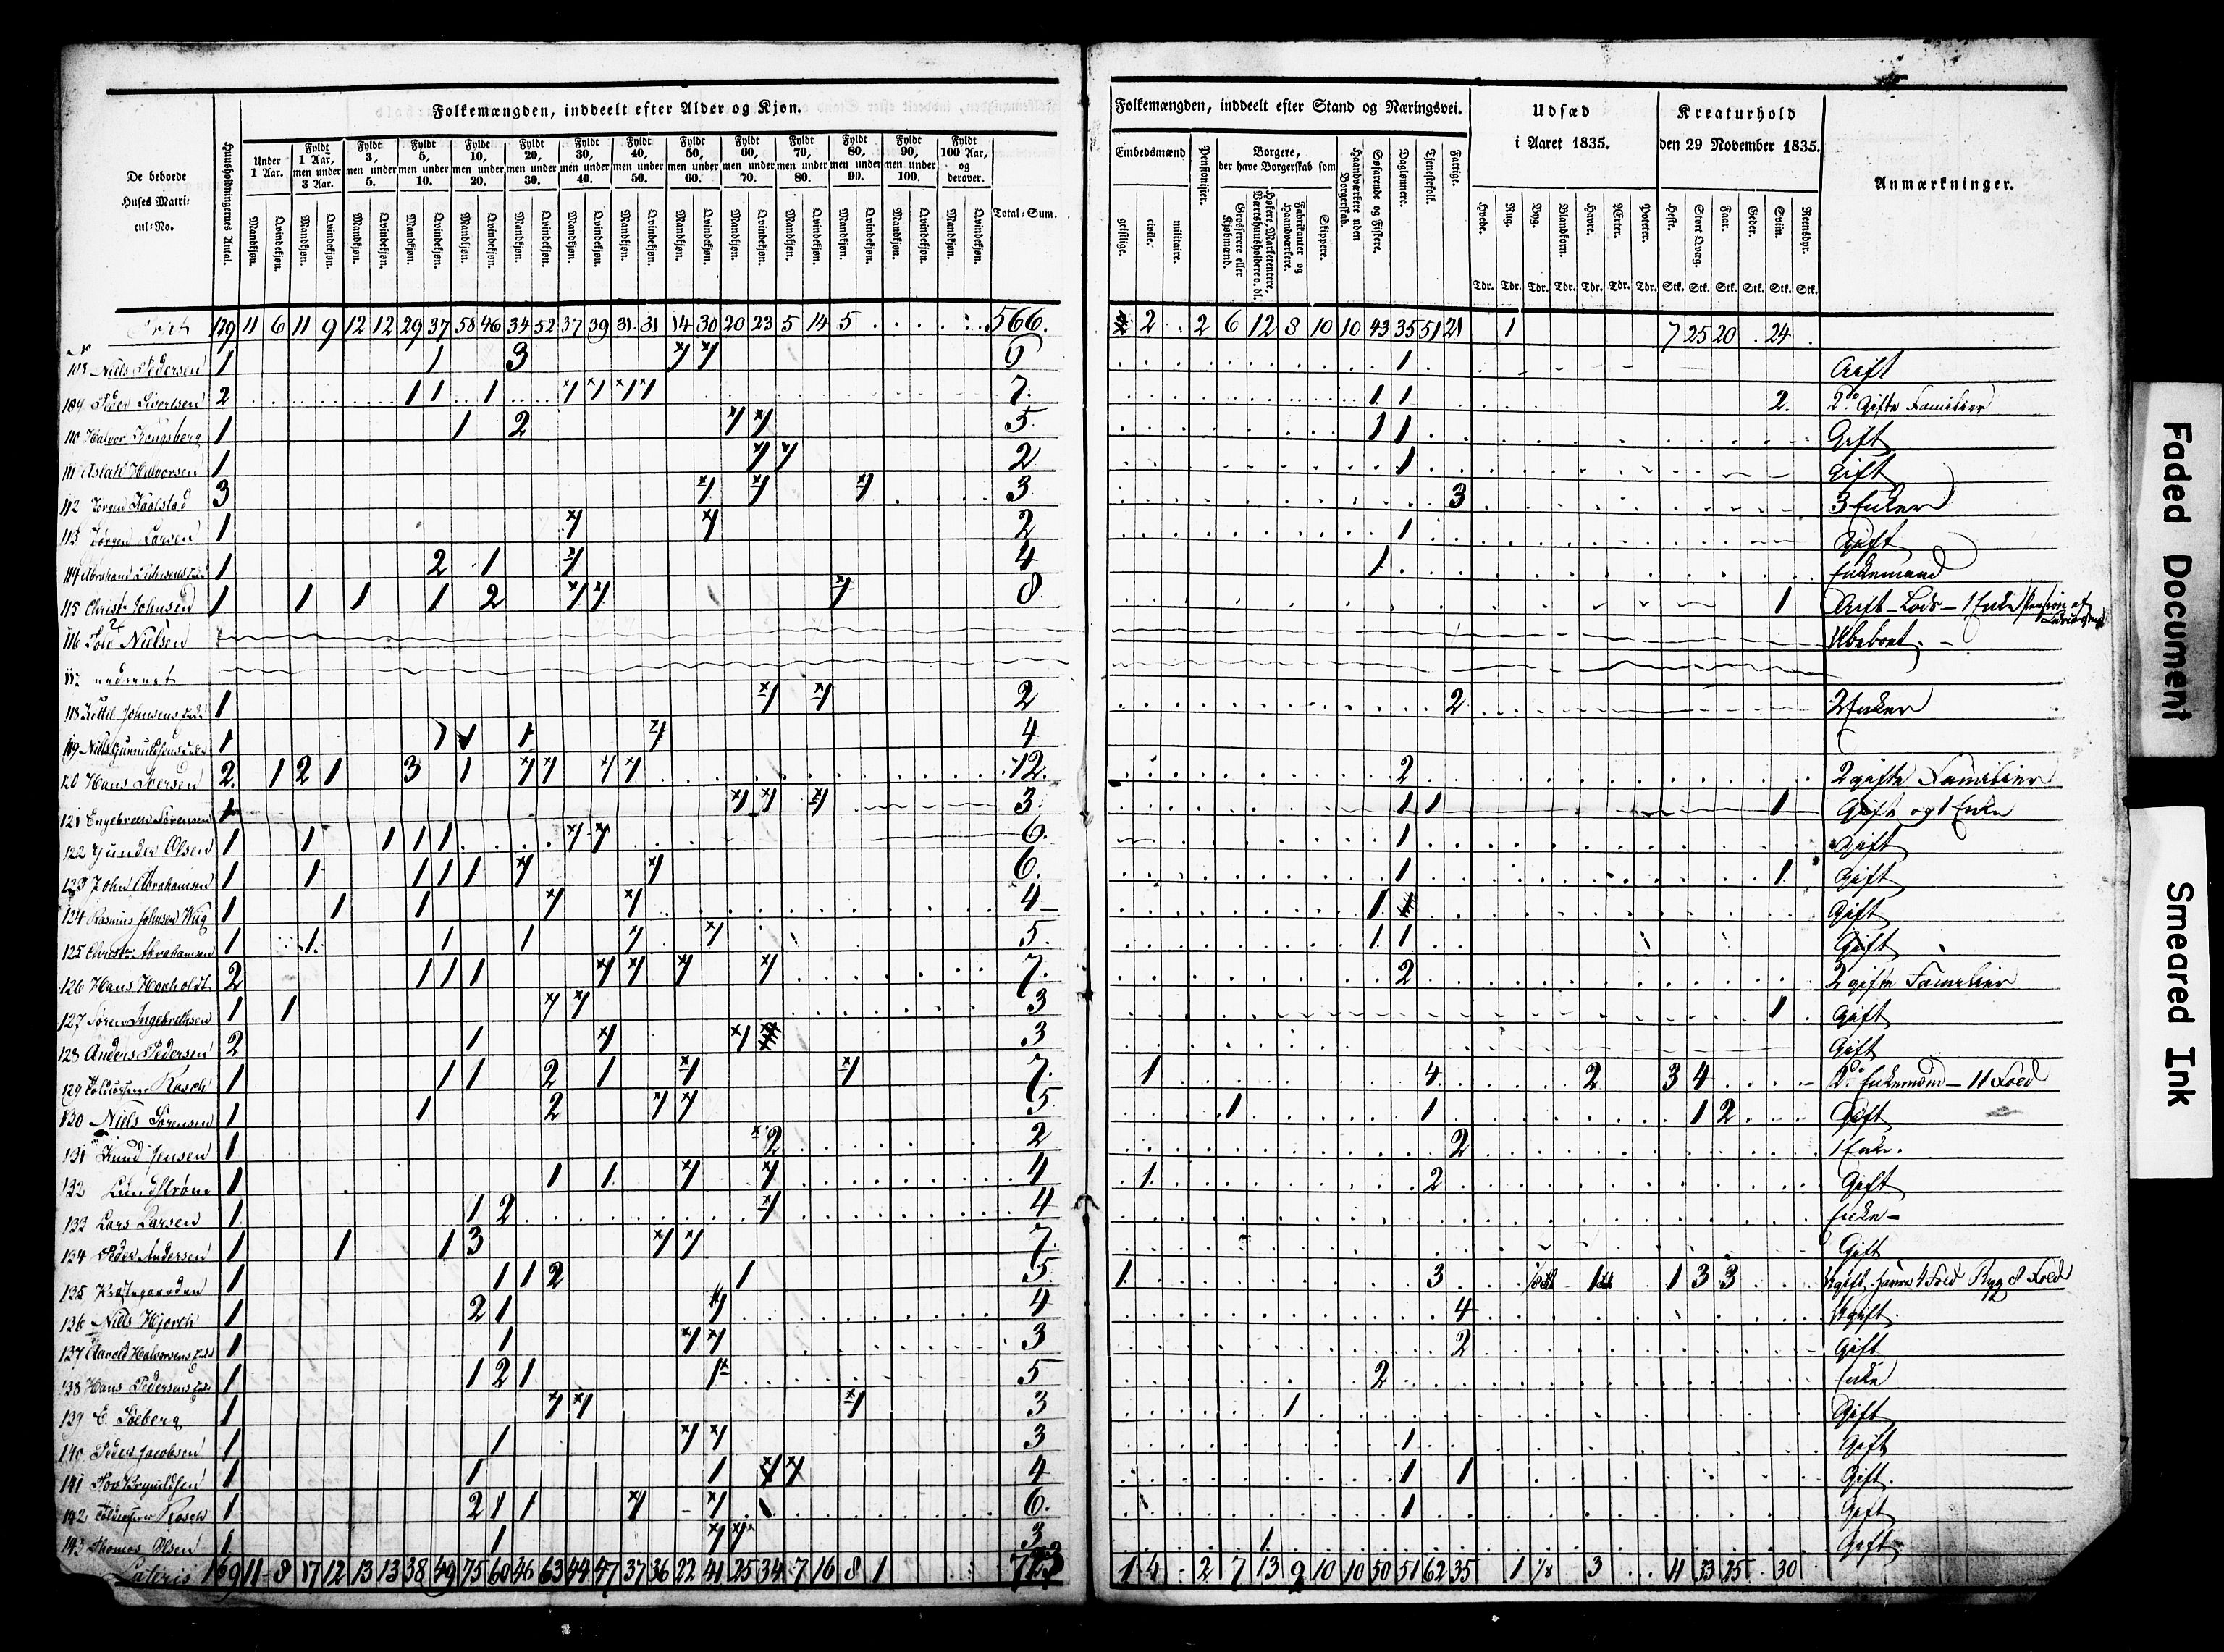 Folkemængden, inddeelt efter Alder og Kjøn.
De beboede Huses Matricul-No.
Huusholdningernes Antal.
Under 1 Aar.
Fyldt 1 Aar, men under 3 Aar.
Fyldt 3, men under 5.
Fyldt 5, men under 10.
Fyldt 10, men under 20.
Fyldt 20, men under 30.
Fyldt 30, men under 40.
Fyldt 40, men under 50.
Fyldt 50, men under 60.
Fyldt 60, men under 70.
Fyldt 70, men under 80.
Fyldt 80, men under 90.
Fyldt 90, men under 100.
Fyldt 100 Aar, og derover.
Mandkjøn. Qvindekjøn.
Total-Sum.
Folkemængden, inddeelt efter Stand og Næringsvei.
Embedsmænd
geistlige. civile. militaire.
Pensionister.
Borgere, der have Borgerskab som
Grosserere eller Kjøbmænd.
Høkere, Marketentere, Værtshuusholdere o. dl.
Fabrikanter og Haandværkere.
Skippere.
Haandværkere uden Borgerskab.
Søfarende og Fiskere.
Daglønnere.
Tjenestefolk.
Fattige.
Udsæd i Aaret 1835.
Hvede. Rug. Byg. Blandkorn. Havre. Ærter. Poteter.
Tdr. Tdr. Tdr. Tdr. Tdr. Tdr. Tdr.
Kreaturhold den 29 November 1835.
Heste. Stort Qvæg. Faar. Geder. Sviin. Rensdyr.
Stk. Stk. Stk. Stk. Stk. Stk.
Anmærkninger.
129 11 6 11 9 12 12 29 37 58 46 34 52 37 39 31 31 14 30 20 23 5 14 5 566. 2 2 6 12 8 10 10 43 35 51 21 1 7 25 20 24
Niels Pedersen 1 1 3 1 1 1 Gift
109 Iver Sivertsen 2 1 1 1 1 1 1 1 7. 1 1 2. 2de Gifte Familier
110 Halvor Kongsberg 1 1 2 1 1 5 1 1 Gift
111 Aslak Halvorsen 1 1 1 2 1 Gift
112 Jørgen 3 1 1 1 3 3 3 Enker
113 Jørgen Larsen 1 1 1 2 1 Gift
114 Abraham 1 2 1 1 4 1 Enkemand
115 Christ. Johnsen 1 1 1 1 2 1 1 1 8 1 Gift - Lods - 1 Enke
116 Nielsen Ubeboet.
118 Kittel Johnsens 1 1 1 2 2 2 Enker
119 Niels Gunnuldsens 1 1 1 1 1 4
120 Hans Iversen 2. 1 2 1 3 1 1 1 1 1 12. 2 2 gifte Familier
121 Engebret Sørensen 1 1 1 1 3 1 1 1 Gift og 1 Enke
122 Gunder Olsen 1 1 1 1 1 1 1 6. 1 Gift
123 John Abrahamsen 1 1 1 1 1 1 1 6. 1 1 Gift
124 Rasmus Johnsen 1 1 1 1 1 4 1 Gift
125 Christ. Abrahamsen 1 1 1 1 1 1 5. 1 1 Gift
126 Hans 2 1 1 1 1 1 1 1 7. 2 2 gifte Familier
127 Søren Ingebrethsen 1 1 1 1 3 1 Gift
128 Anders Pedersen 2 1 1 1 3 Gift
129 Rasch 1 1 1 2 1 1 1 7. 1 4 2 3 4 2de Enkemænd - 11 Fold
130 Niels Sørensen 1 1 2 1 1 5 1 1 1 2 Gift
131 Knud Jensen 1 2 2 2 1 Enke.
132 Lundstrøm 1 1 1 1 1 4 1. 2 Gift
133 Lars Larsen 1 1 2 1 4 Enke -
134 Peder Andersen 1 1 1 3 1 1 7. Gift
135 Prestegaarden 1 1 1 2 1 5 1 3 1 1 3 3 Ugift, Havre 4 Fold Byg 8 Fold
136 Niels Hjorth 1 2 1 1 4 4 Ugift.
137 Halvorsens 1 1 1 1 3 2 Gift
138 Hans Pedersens 1 1 2 1 1 5 2 Enke
139 E. Solberg 1 1 1 1 3 1 Gift
140 Peder Jacobsen 1 1 1 1 3 1 Gift
141 1 1 1 1 1 4 1 1 Gift.
142 Rasch 1 2 1 1 1 1 6. 1 Gift
143 Thomas Olsen 1 1 1 1 3 1 Gift
Lateris 169 11 8 17 12 13 13 38 49 75 60 46 63 44 47 37 36 22 41 25 34 7 16 8 1 1 4 2 7 13 9 10 10 50 51 62 35 1 1/8 3 11 33 25 30
Faded Document
Smeared Ink